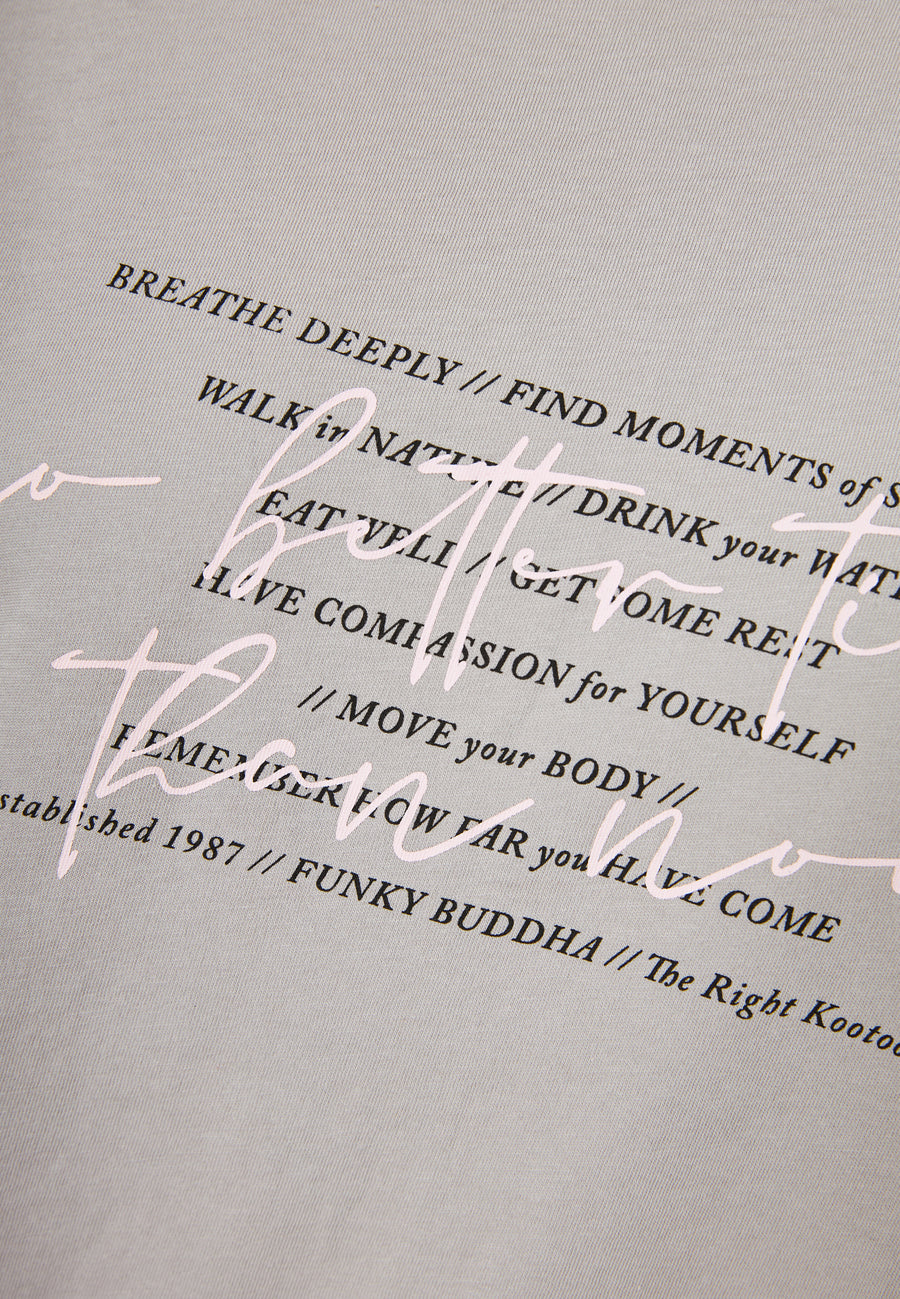 BREATHE DEEPLY // FIND MOMENTS of S
WALK in NATURE // DRINK your WATE
o better ti
EAT WELL // GET SOME REST
HAVE COMPASSION for YOURSELF
// MOVE your BODY //
than no
REMEMBER HOW FAR you HAVE COME
stablished 1987 // FUNKY BUDDHA // The Right Kootoo